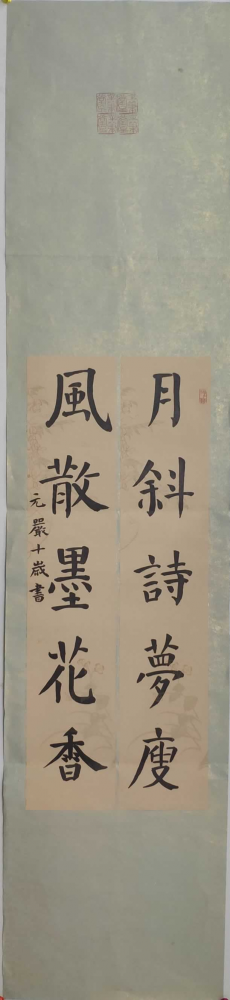 月斜詩夢瘦
風散墨花香
元嚴十歲書